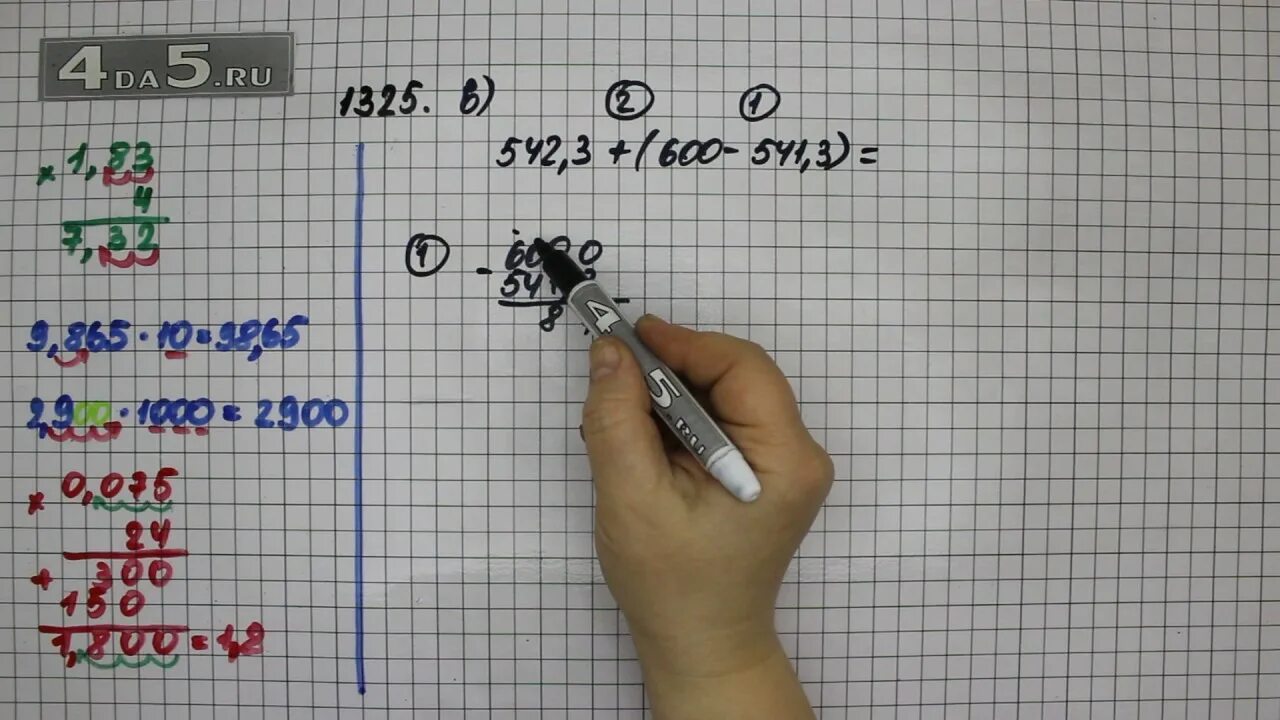 4DA5.RU
1325. в) ② ①
542,3 + (600 - 541,3) =
× 1,83
4
7,32
9,865 · 10 = 98,65
2,900 · 1000 = 2900
× 0,075
24
+ 300
150
1,800 = 1,8
①
600 0
- 541
8
4
5.RU